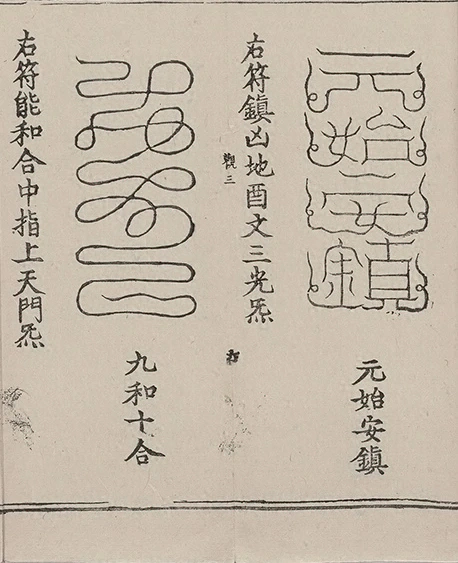 元始安鎮
元始安鎮
右符鎮凶地酉文三光炁
觀三
九和十合
右符能和合中指上天門炁